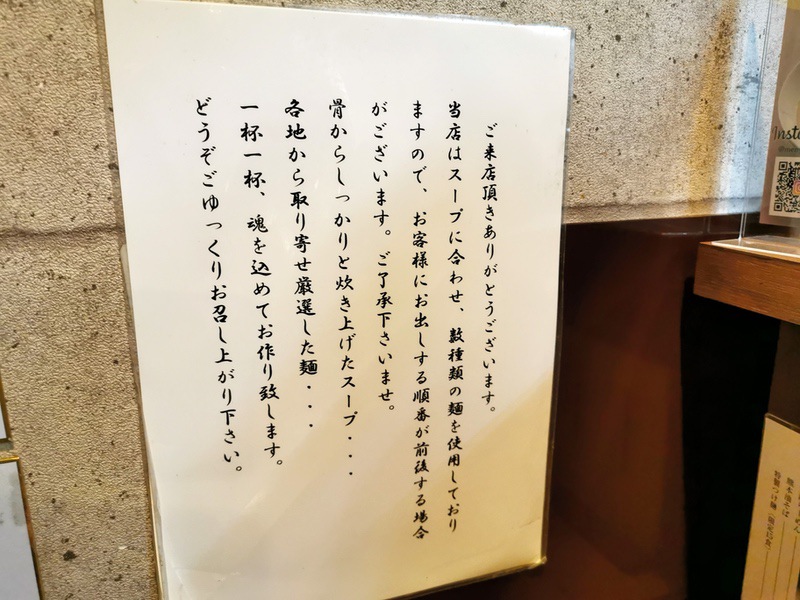 ご来店頂きありがとうございます。
当店はスープに合わせ、数種類の麺を使用しており
ますので、お客様にお出しする順番が前後する場合
がございます。ご了承下さいませ。
骨からしっかりと炊き上げたスープ・・・
各地から取り寄せ厳選した麺・・・
一杯一杯、魂を込めてお作り致します。
どうぞごゆっくりお召し上がり下さい。
Insta